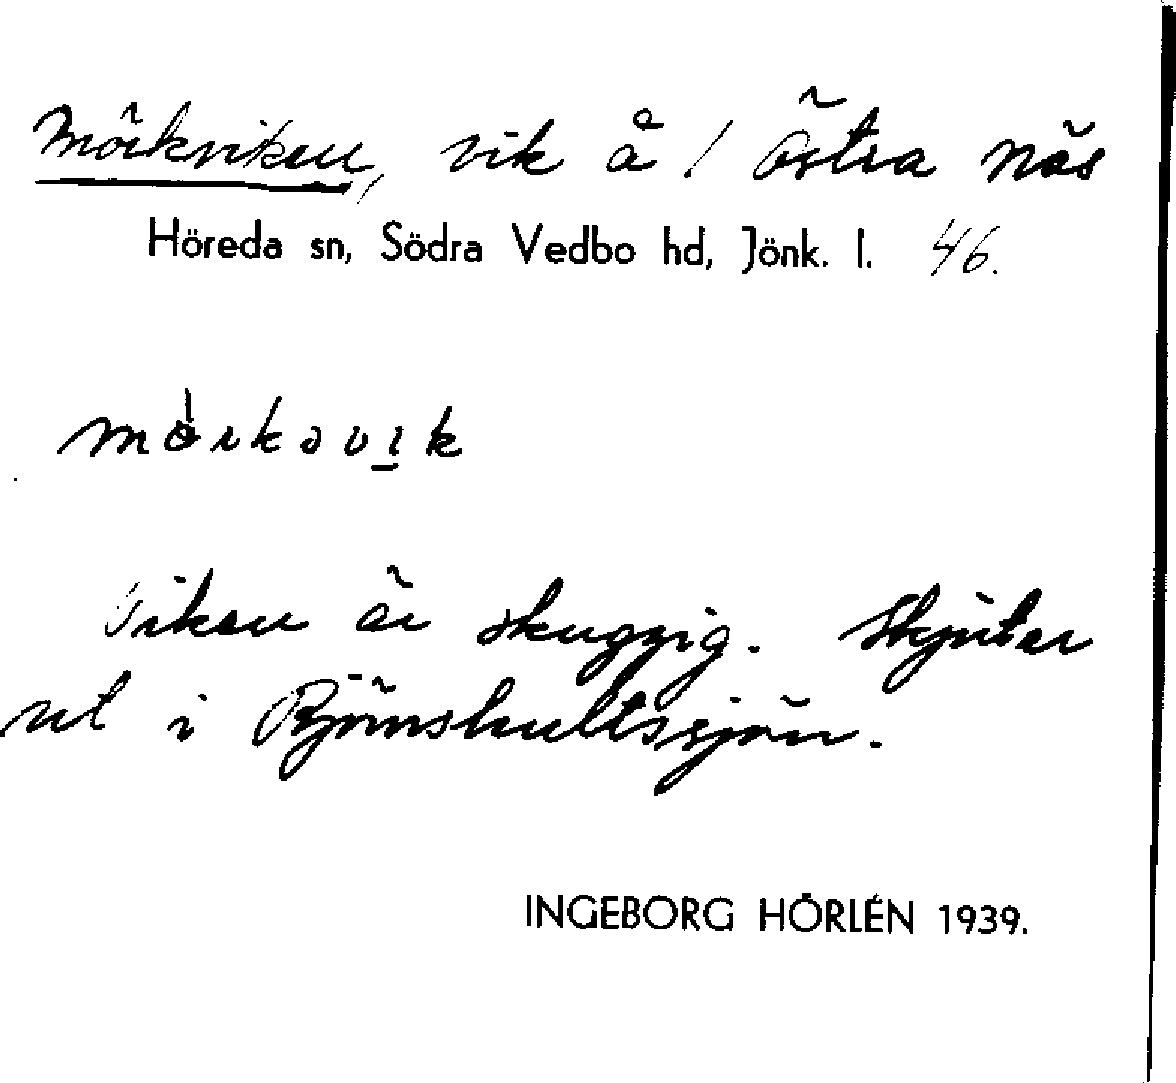 Mörkviken, vik å / Östra Näs
Höreda sn, Södra Vedbo hd, Jönk. l. 46.
mörkəvik
Viken är skuggig. Skjuter
ut i Björnshultssjön.
INGEBORG HÖRLÉN 1939.